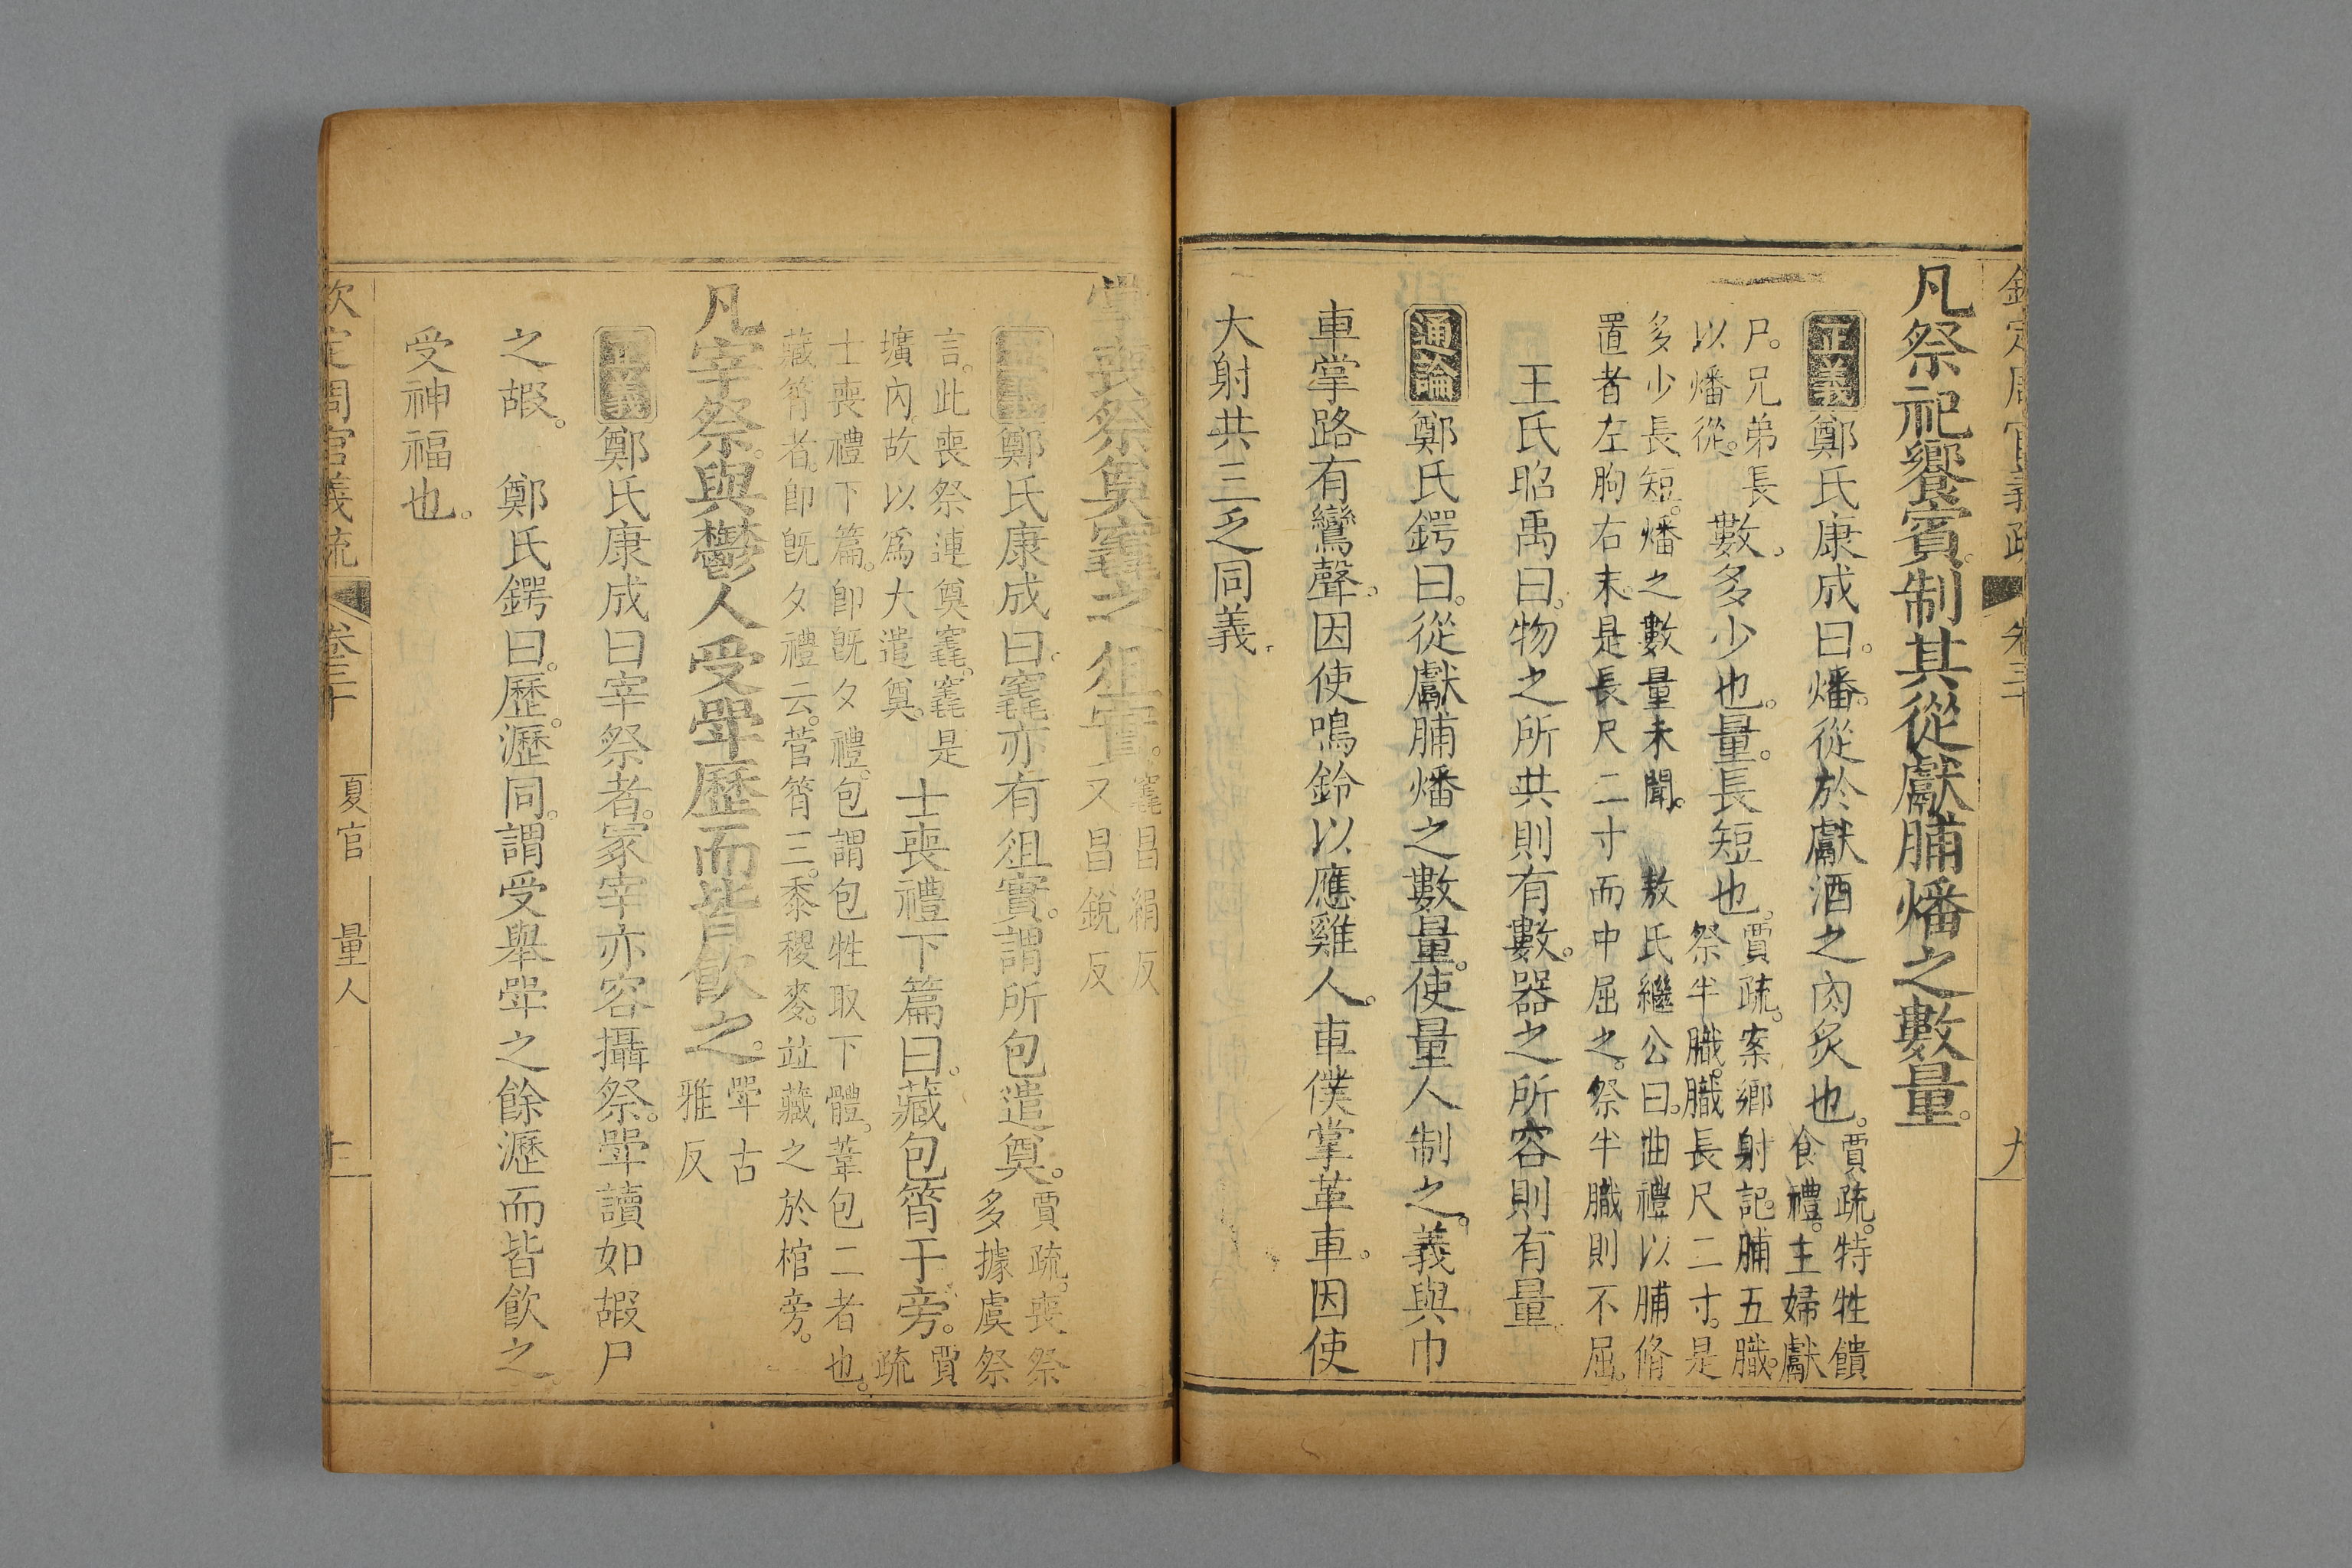 凡祭祀饗賓。制其從獻脯燔之數量。
正義鄭氏康成曰。燔。從於獻酒之肉炙也。賈疏。特牲饋
食禮。主婦獻
尸。兄弟長
以燔從。數。多少也。量。長短也。賈疏。案鄉射記。脯五膱。
祭半膱。膱長尺二寸。是
多少長短。燔之數量未聞。 敖氏繼公曰。曲禮以脯脩
置者左朐右末。是長尺二寸而中屈之。祭半膱則不屈。
王氏昭禹曰。物之所共則有數。器之所容則有量
通論鄭氏鍔曰。從獻脯燔之數量。使量人制之。義與巾
車掌路有鸞聲。因使鳴鈴以應雞人。車僕掌革車。因使
大射共三乏同義
掌喪祭奠竁之俎實。竁昌絹反
又昌銳反
正義鄭氏康成曰。竁亦有俎實。謂所包遣奠。賈疏。喪祭
多據虞祭
言。此喪祭連奠竁。竁是
壙內。故以爲大遣奠。士喪禮下篇曰。藏包筲于旁。賈
疏
士喪禮下篇。卽旣夕禮。包謂包牲取下體。葦包二者也。
藏筲者。卽旣夕禮云。菅筲三。黍稷麥。竝藏之於棺旁。
凡宰祭。與鬱人受斝歷而皆飲之。斝古
雅反
正義鄭氏康成曰宰祭者。冢宰亦容攝祭。斝讀如嘏尸
之嘏。 鄭氏鍔曰。歷。瀝同。謂受舉斝之餘瀝而皆飲之。
受神福也。
卷三十
夏官 量人